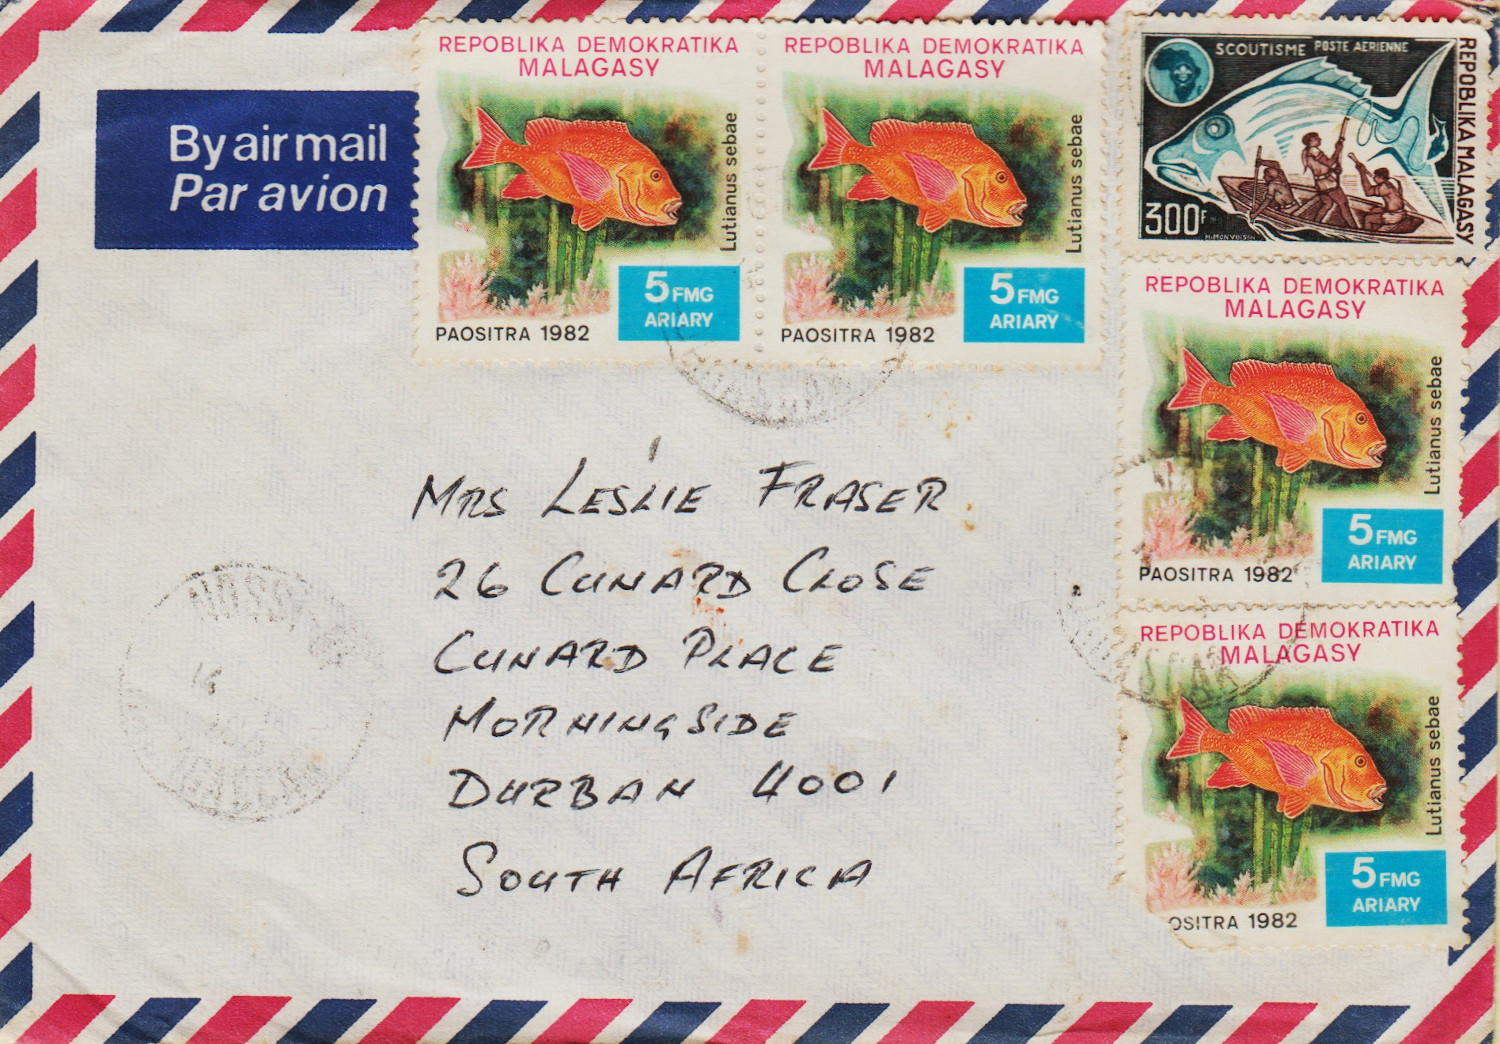 By air mail
Par avion
REPOBLIKA DEMOKRATIKA
MALAGASY
Lutianus sebae
5 FMG
ARIARY
PAOSITRA 1982
REPOBLIKA DEMOKRATIKA
MALAGASY
Lutianus sebae
5 FMG
ARIARY
PAOSITRA 1982
SCOUTISME POSTE AERIENNE
REPOBLIKA MALAGASY
300F
H. MONVOISIN
REPOBLIKA DEMOKRATIKA
MALAGASY
Lutianus sebae
5 FMG
ARIARY
PAOSITRA 1982
REPOBLIKA DEMOKRATIKA
MALAGASY
Lutianus sebae
5 FMG
ARIARY
OSITRA 1982
MRS LESLIE FRASER
26 CUNARD CLOSE
CUNARD PLACE
MORNINGSIDE
DURBAN 4001
SOUTH AFRICA